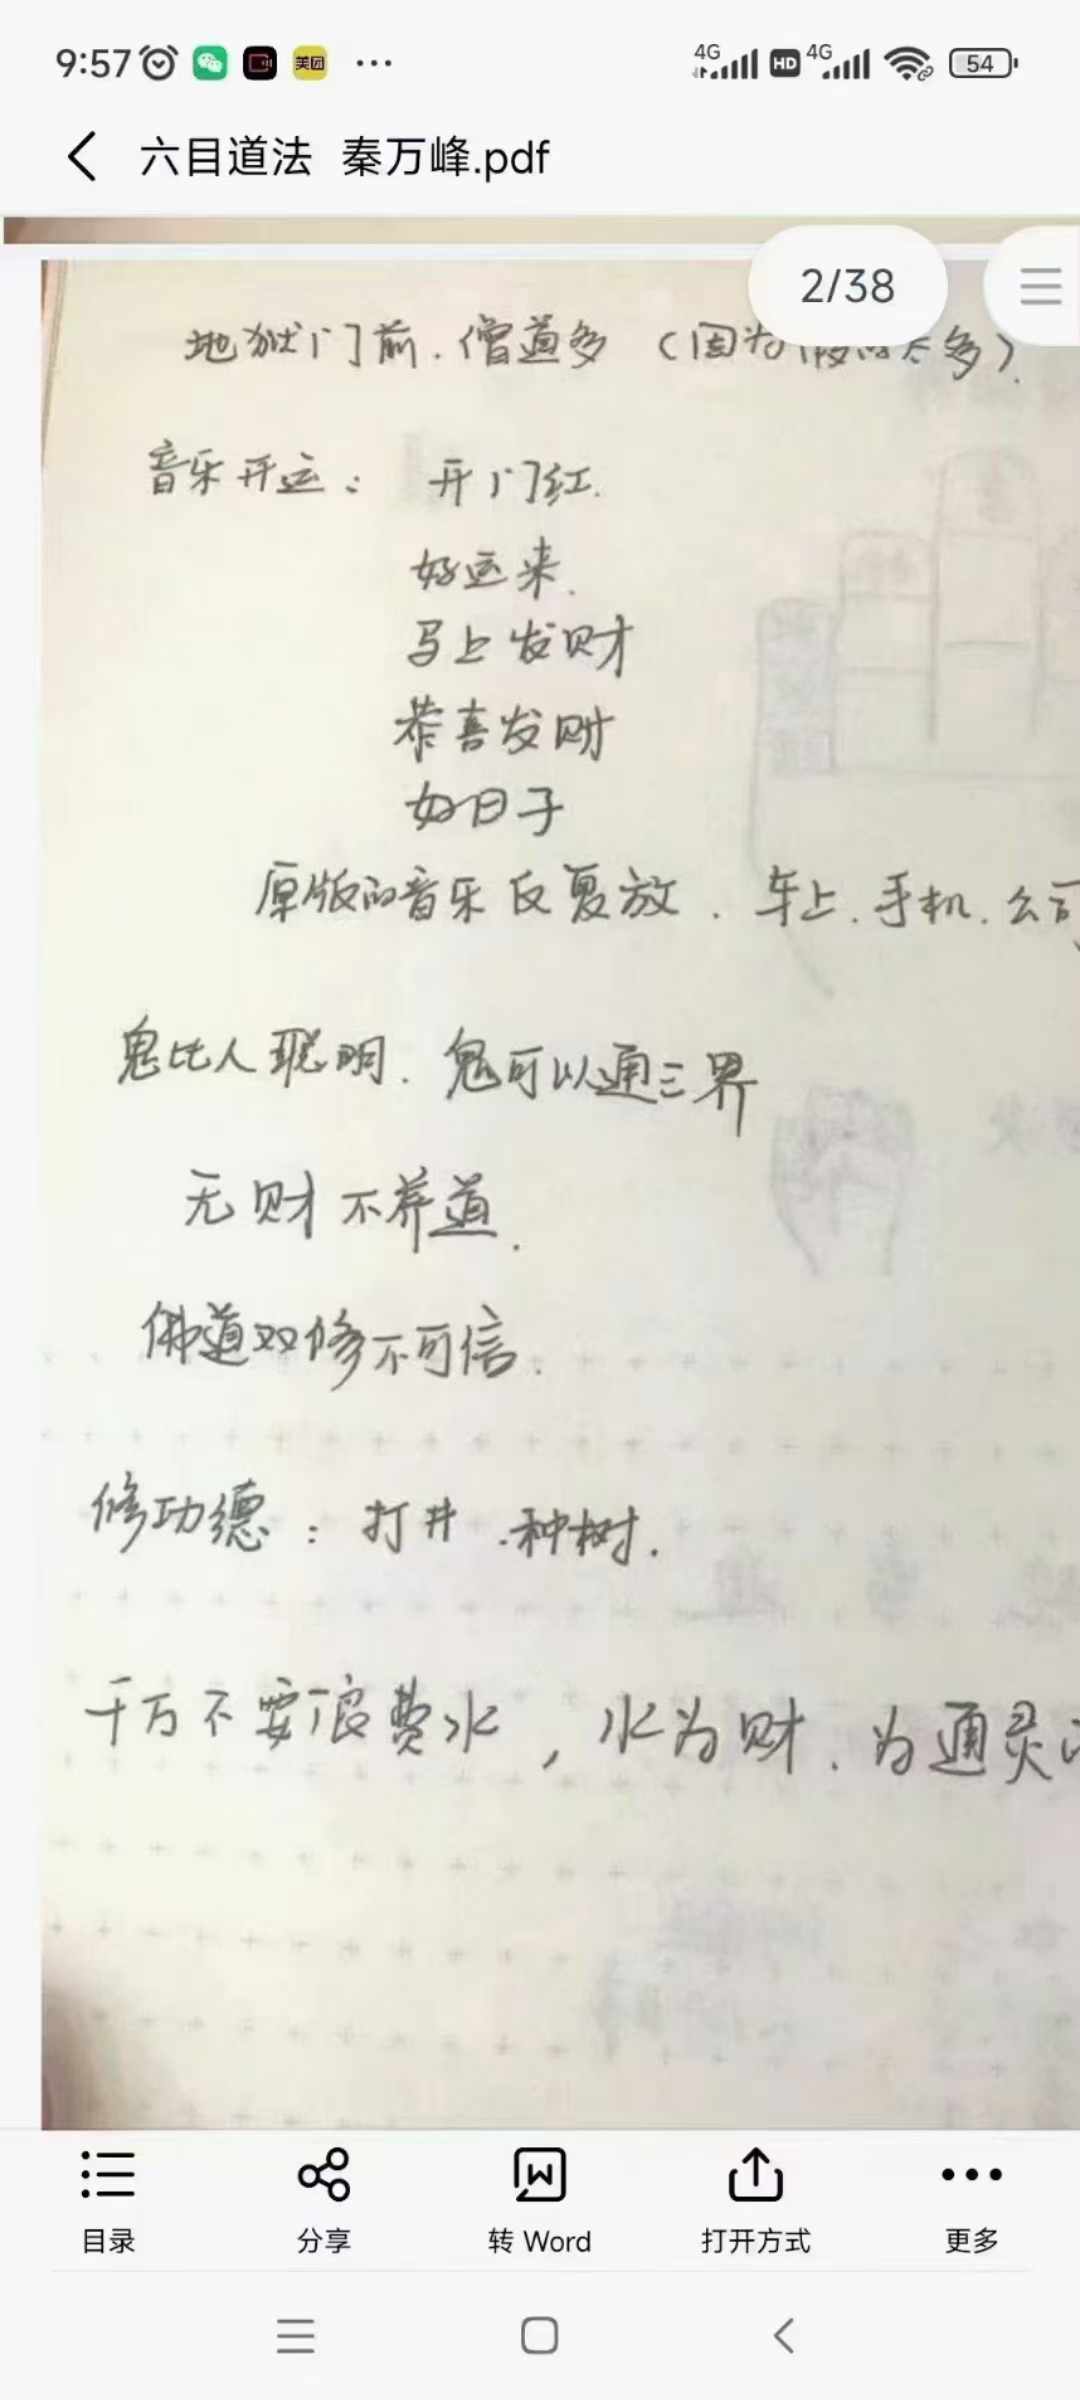 9:57 美团 ... 4G HD 4G 54
六目道法 秦万峰.pdf
2/38
地狱门前.僧道多 (因为假的太多).
音乐开运: 开门红.
好运来.
马上发财
恭喜发财
好日子
原版的音乐反复放.车上.手机.公司
鬼比人聪明.鬼可以通三界
无财不养道.
佛道双修不可信.
修功德:打井.种树.
千万不要浪费水,水为财.为通灵
目录 分享 转 Word 打开方式 更多